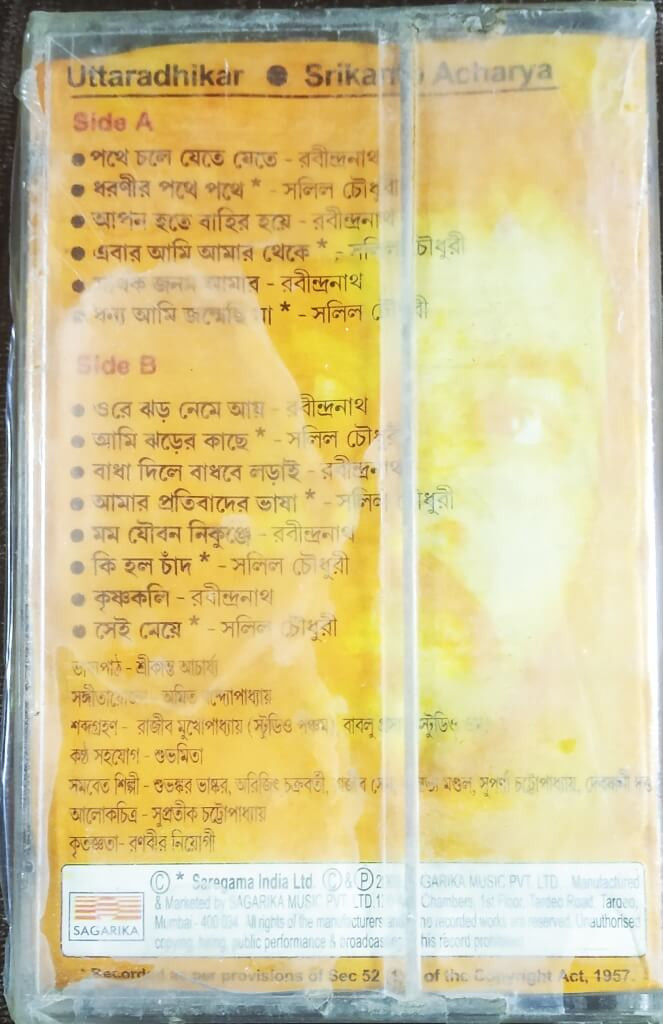 Uttaradhikar ● Srikanto Acharya
Side A
● পথে চলে যেতে যেতে - রবীন্দ্রনাথ
● ধরণীর পথে পথে * - সলিল চৌধুরী
● আপন হতে বাহির হয়ে - রবীন্দ্রনাথ
● এবার আমি আমার থেকে * - সলিল চৌধুরী
● সার্থক জনম আমার - রবীন্দ্রনাথ
● ধন্য আমি জন্মেছি মা * - সলিল চৌধুরী
Side B
● ওরে ঝড় নেমে আয় - রবীন্দ্রনাথ
● আমি ঝড়ের কাছে * - সলিল চৌধুরী
● বাধা দিলে বাধবে লড়াই - রবীন্দ্রনাথ
● আমার প্রতিবাদের ভাষা * - সলিল চৌধুরী
● মম যৌবন নিকুঞ্জে - রবীন্দ্রনাথ
● কি হল চাঁদ * - সলিল চৌধুরী
● কৃষ্ণকলি - রবীন্দ্রনাথ
● সেই মেয়ে * - সলিল চৌধুরী
ভাষ্যপাঠ - শ্রীকান্ত আচার্য্য
সঙ্গীতায়োজন - অমিত বন্দ্যোপাধ্যায়
শব্দগ্রহণ - রাজীব মুখোপাধ্যায় (স্টুডিও পঞ্চম), বাবলু
কণ্ঠ সহযোগ - শুভমিতা
সমবেত শিল্পী - শুভঙ্কর ভাস্কর, অরিজিৎ চক্রবর্তী, মণ্ডল, সুপর্ণা চট্টোপাধ্যায়, দত্ত
আলোকচিত্র - সুপ্রতীক চট্টোপাধ্যায়
কৃতজ্ঞতা- রণবীর নিয়োগী
SAGARIKA
© * Saregama India Ltd. © & ℗ SAGARIKA MUSIC PVT. LTD. Manufactured
& Marketed by SAGARIKA MUSIC PVT. LTD. Chambers, 1st Floor, Tardeo Road, Tardeo,
Mumbai - 400 034. All rights of the manufacturers and the recorded works are reserved. Unauthorised
copying, hiring, public performance & broadcasting this record prohibited.
* Recorded as per provisions of Sec 52 of the Copyright Act, 1957.